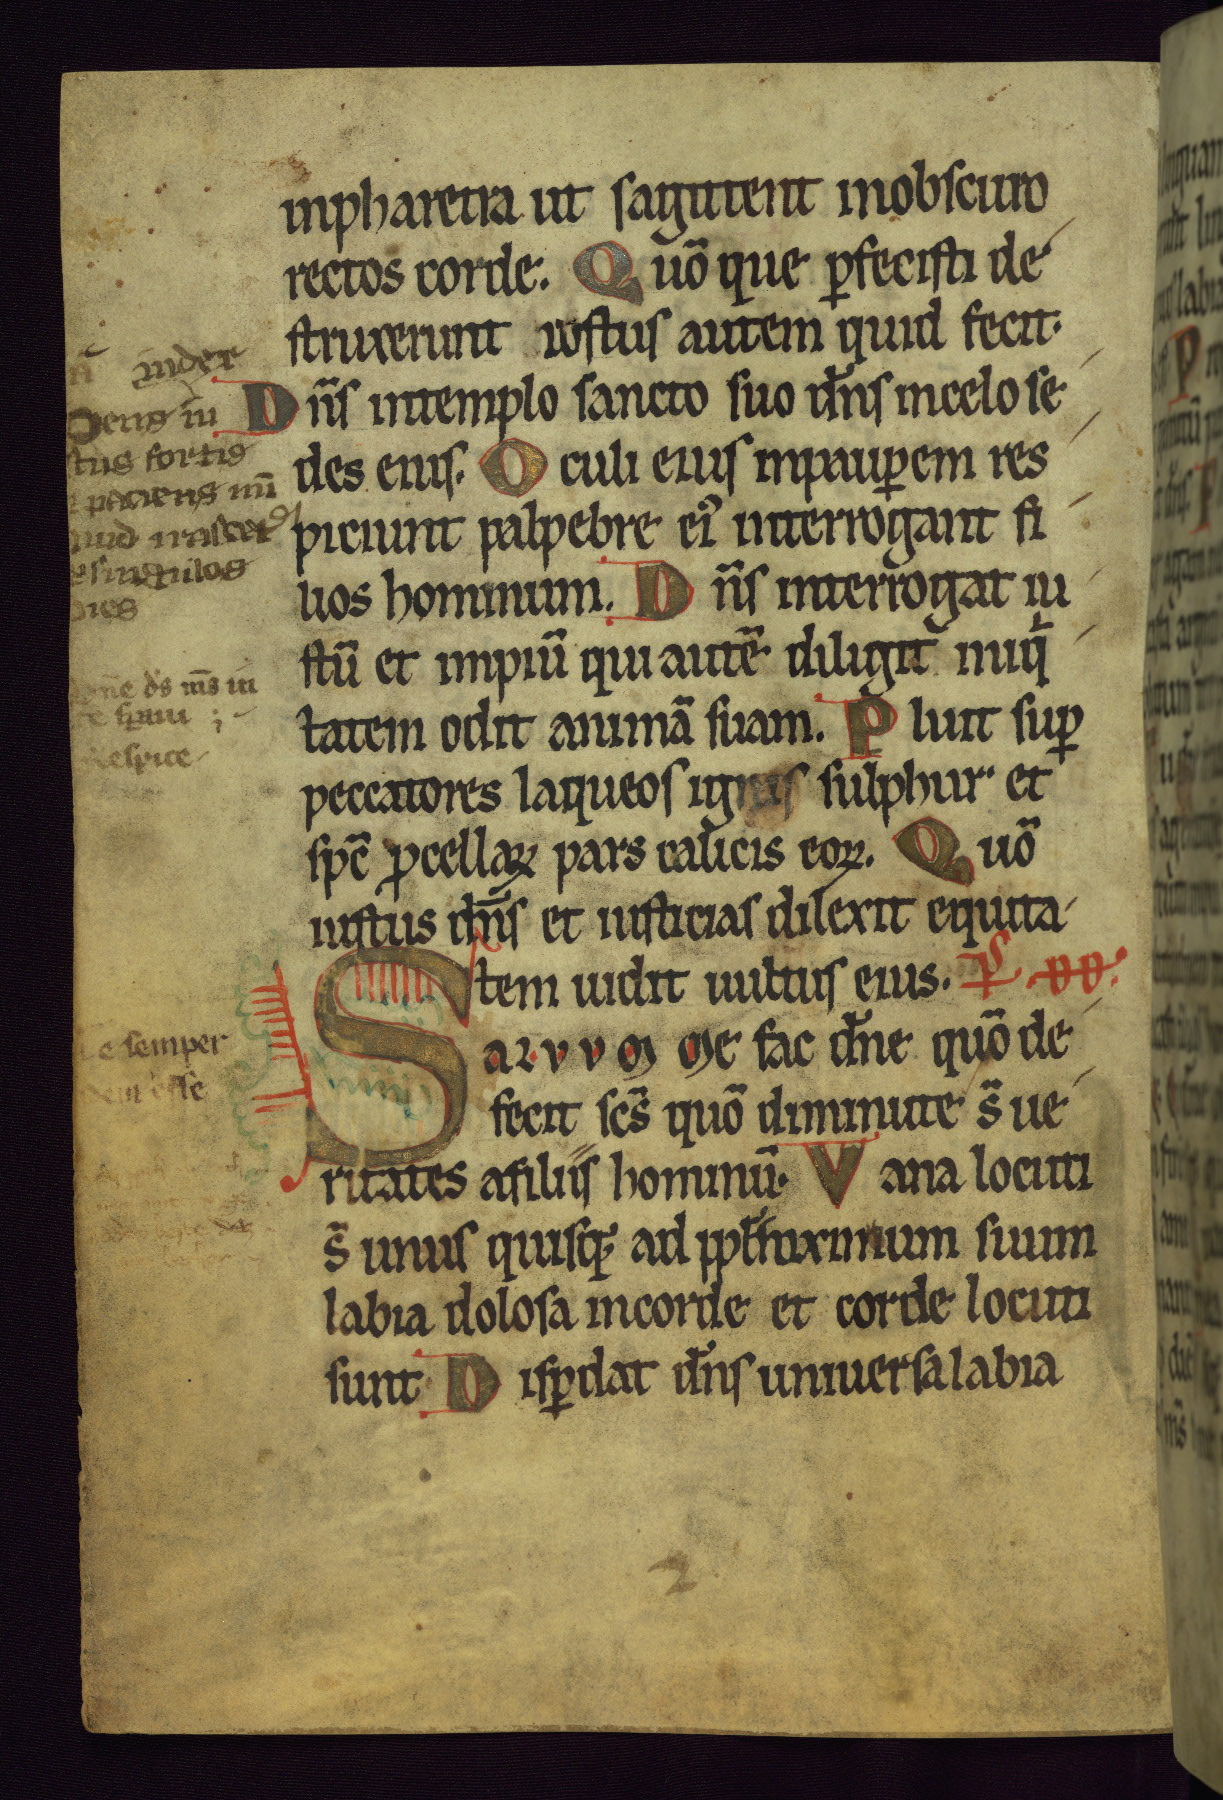 inpharetra ut sagittent inobscuro
rectos corde. Quō que ꝑfecisti de
struxerunt iustus autem quid fecit.
Dn̄s intemplo sancto suo dn̄s incelo se
des eius. Oculi eius inpauꝑem res
piciunt palpebre eiꝰ interrogant fi
lios hominum. Dn̄s interrogat iu
stū et impiū qui autē diligit iniq̄
tatem odit animā suam. Pluit suꝑ
peccatores laqueos ignis sulphur et
spc̄ ꝓcellaꝝ pars calicis eoꝝ. Quō
iustus dn̄s et iusticias dilexit equita
tem uidit uultus eius. Ps
Saluum me fac dn̄e quō de
fecit sc̄s quō diminute s̄ ue
ritates afiliis hominū. Vana locuti
s̄ unus quisqꝫ ad ximum suum
labia dolosa incorde et corde locuti
sunt Disꝑdat dn̄s uniuersa labia
iudex
Deus iu
stus fortis
paciens
singulos
dies
Respice
semper
2